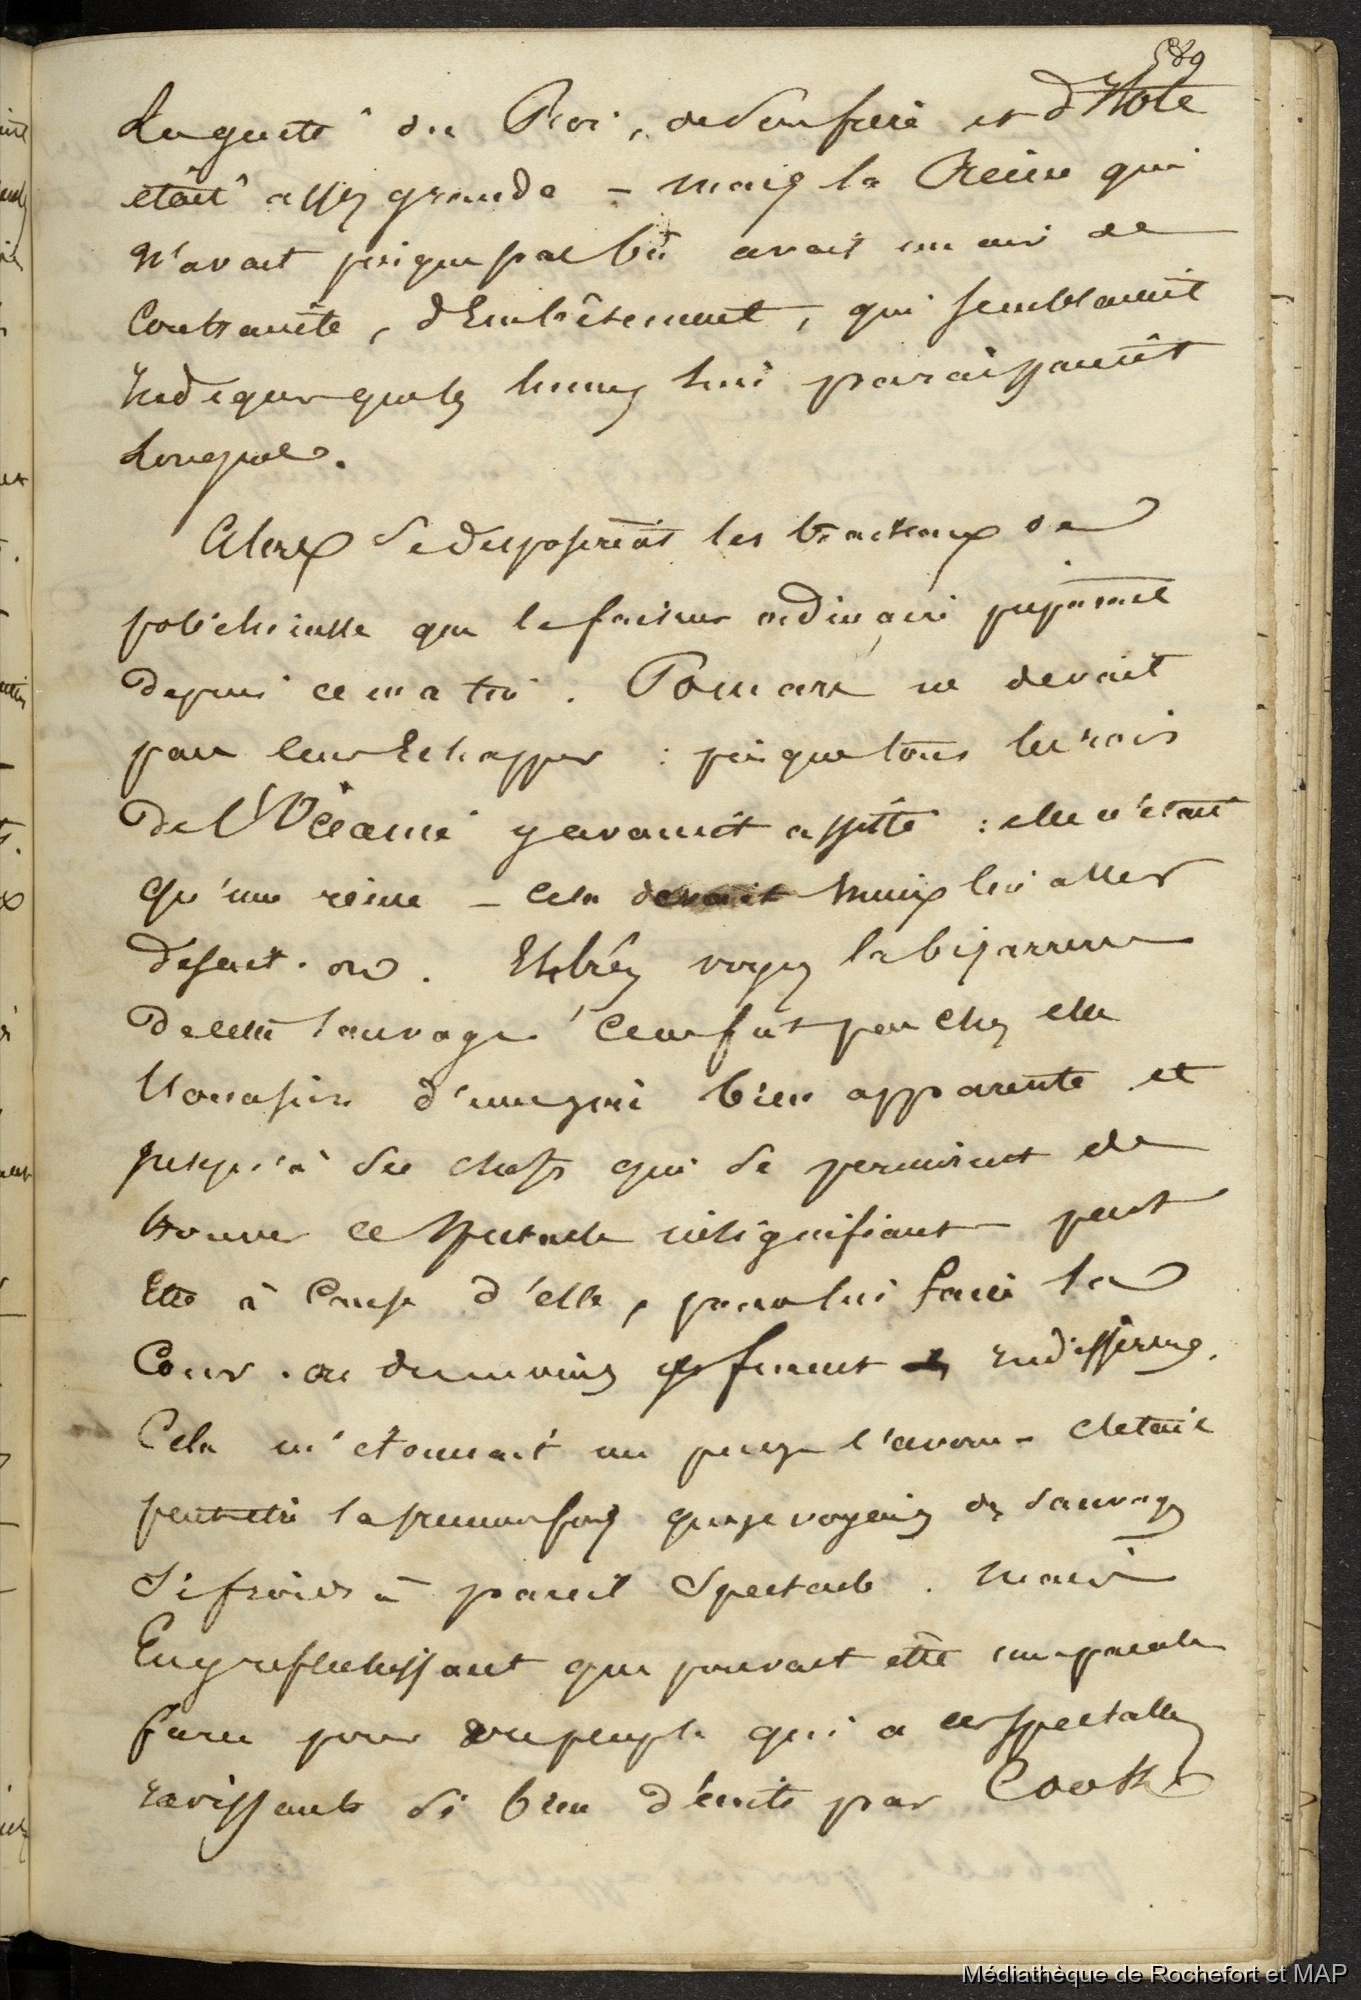 589
La gaieté du Roi, de son frère et d'Hote
était assez grande - mais la Reine qui
n'avait presque pas bu avait un air de
Contrainte, d'Embêtement, qui semblaient
Indiquer que les heures lui paraissaient
Longues.
Alors se disposèrent les tréteaux de
polichinelle que le faiseur ordinaire préparait
depuis ce matin. Pomare ne devait
pas leur Echapper : presque tous les rois
de l'Océanie y avaient assisté : elle n'était
qu'une reine - cela devait mieux lui aller
Eh bien voyez la bizarrerie
de cette sauvage ! Ce ne fut pas chez elle
l'occasion d'une joie bien apparente et
jusqu'à ses chefs qui se permirent de
trouver ce spectacle insignifiant peut
Etre à Cause d'elle, pour lui faire la
Cour. ou du moins ils furent Indifférens.
Cela m'étonnait un peu je l'avoue - c'etait
peut-etre la premiere fois que je voyais des sauvages
si froids à pareil Spectacle. mais
En y reflechissant que pouvait être une pareille
farce pour un peuple qui a ces spectacles
ravissants si bien décrits par Cook
Médiathèque de Rochefort et MAP